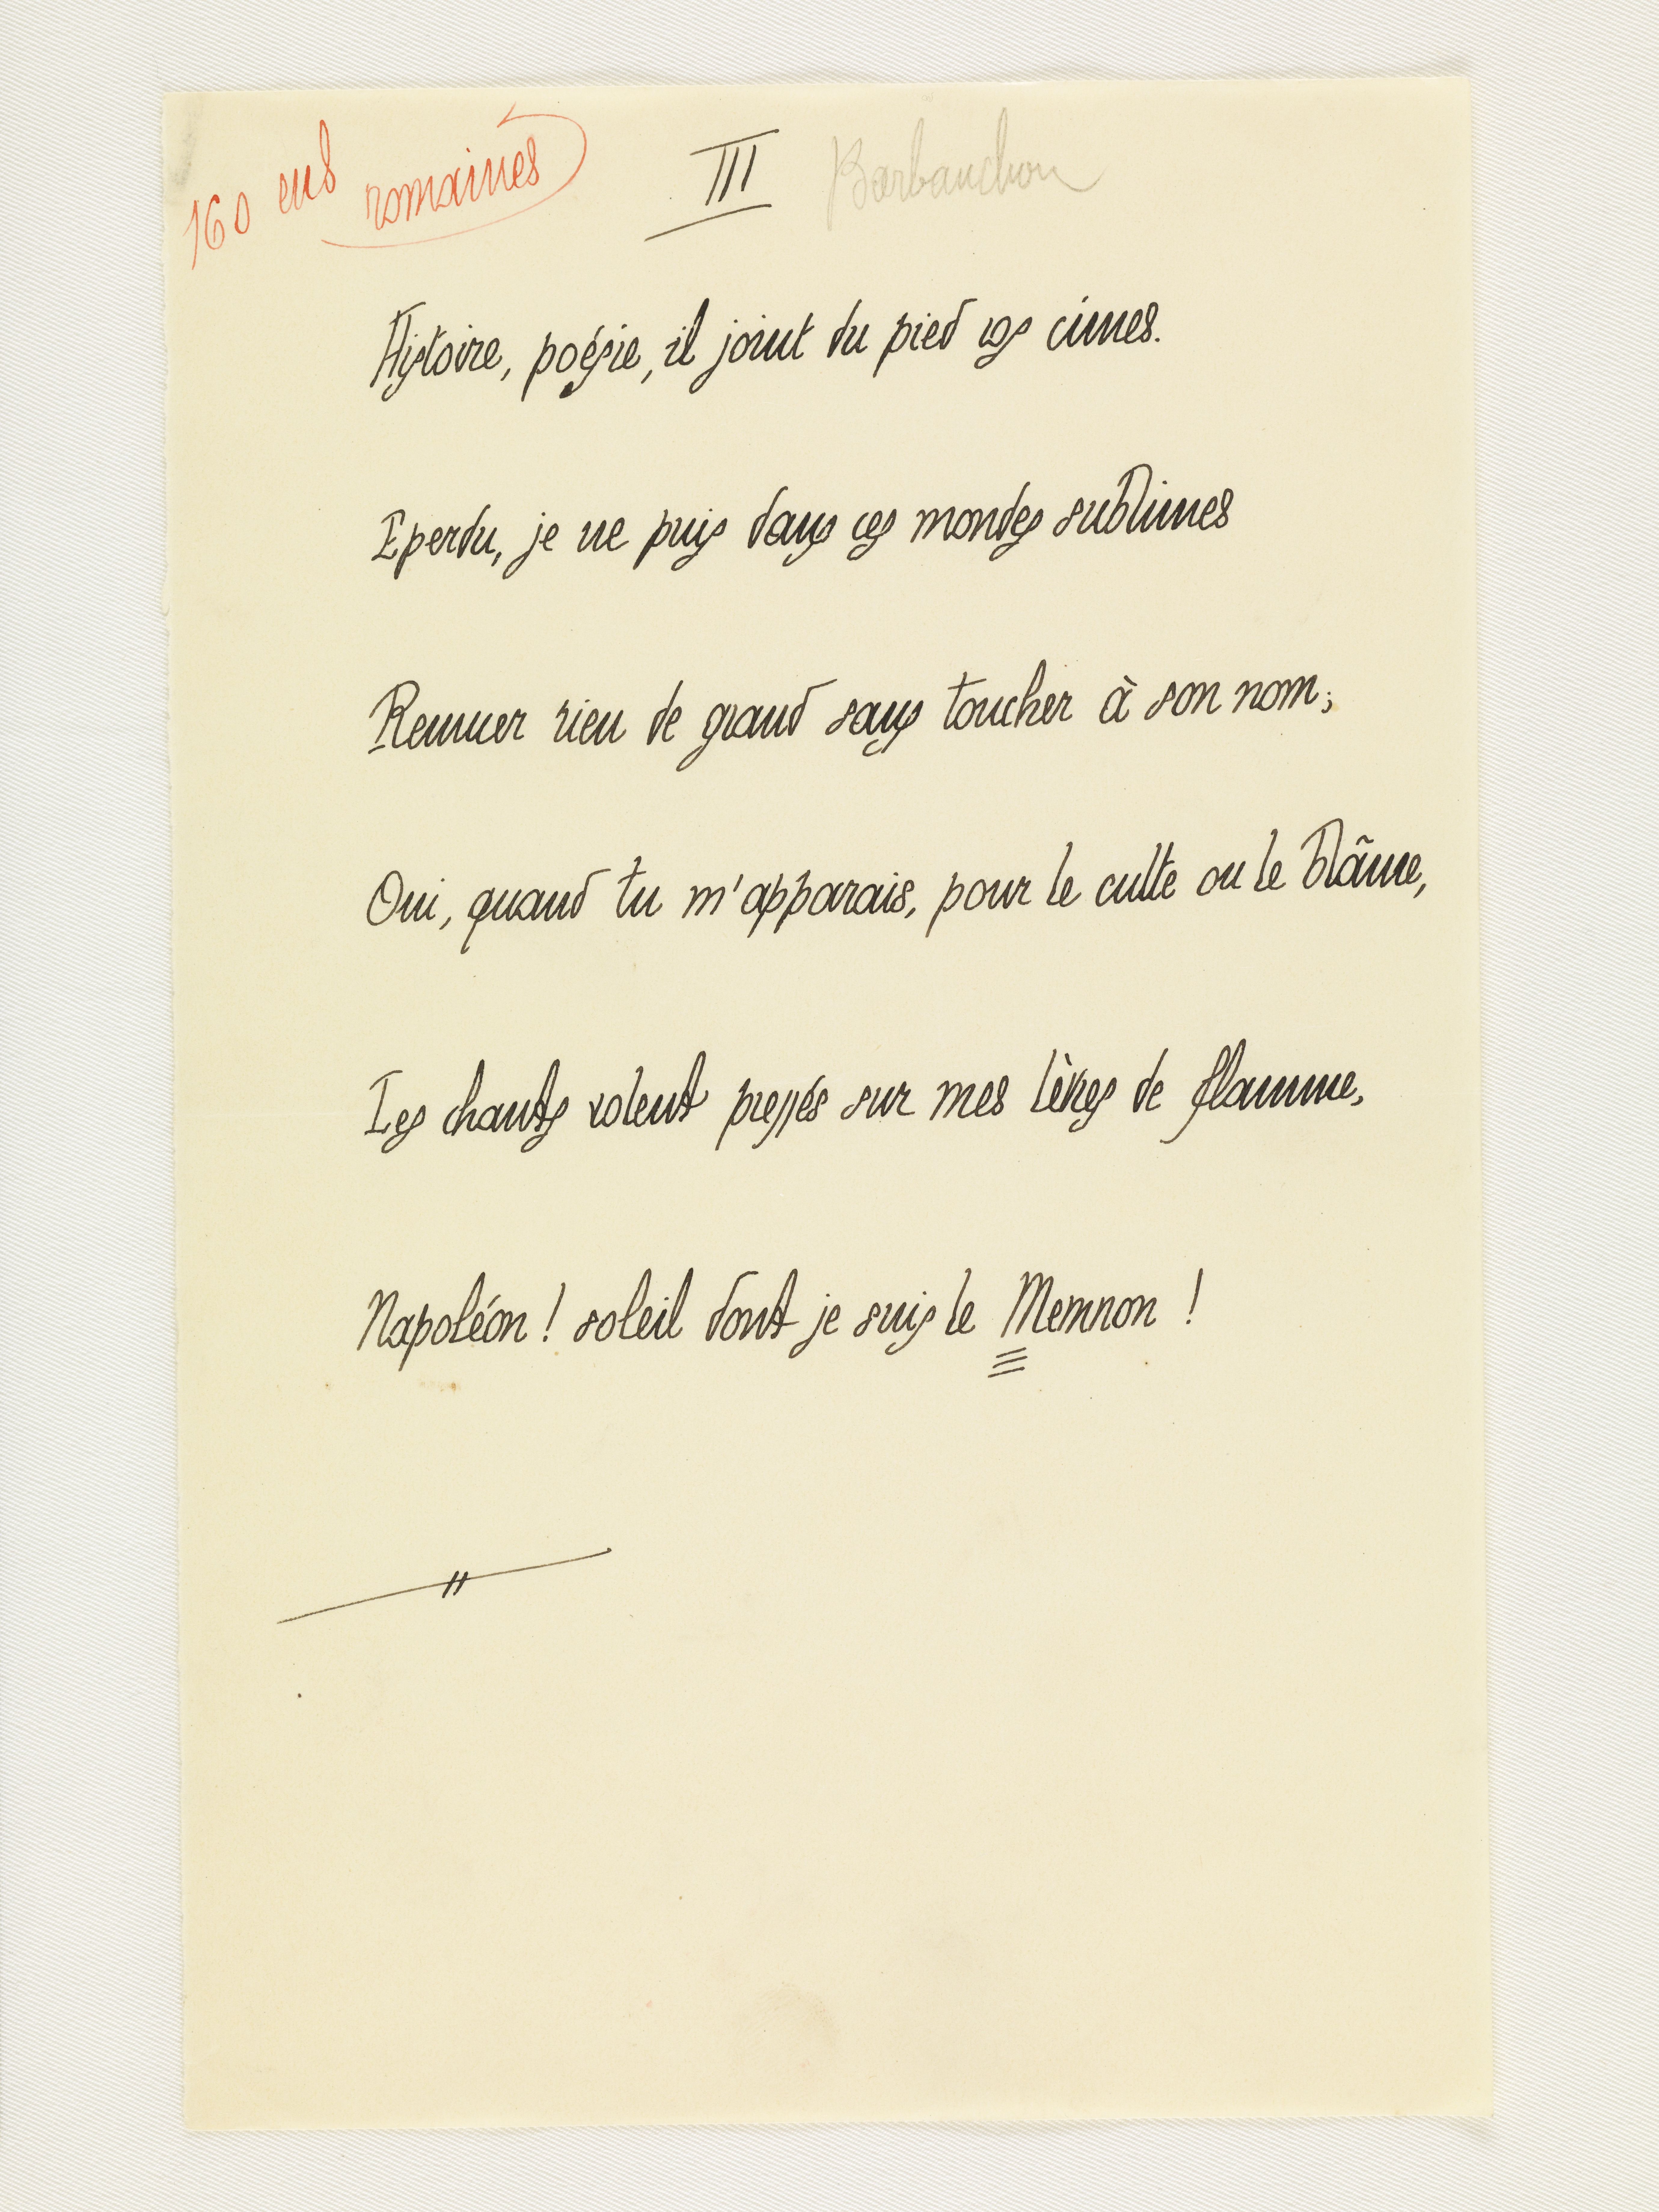 160 ens romaines
III Barbanchon
Histoire, poésie, il joint du pied vos cimes.
Eperdu, je ne puis dans ces mondes sublimes
Remuer rien de grand sans toucher à son nom;
Oui, quand tu m'apparais, pour le culte ou le blâme,
Les chants volent pressés sur mes lèvres de flamme,
Napoléon ! soleil dont je suis le Memnon !